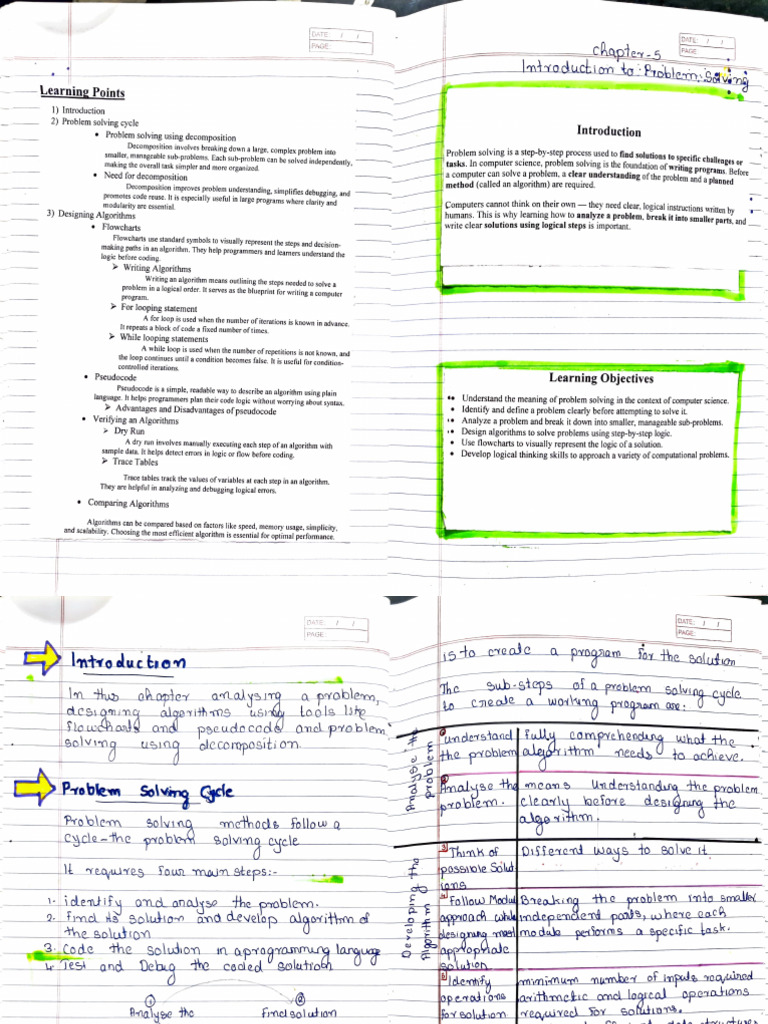 DATE: / /
PAGE:
Learning Points
1) Introduction
2) Problem solving cycle
• Problem solving using decomposition
Decomposition involves breaking down a large, complex problem into
smaller, manageable sub-problems. Each sub-problem can be solved independently,
making the overall task simpler and more organized.
• Need for decomposition
Decomposition improves problem understanding, simplifies debugging, and
promotes code reuse. It is especially useful in large programs where clarity and
modularity are essential.
3) Designing Algorithms
• Flowcharts
Flowcharts use standard symbols to visually represent the steps and decision-
making paths in an algorithm. They help programmers and learners understand the
logic before coding.
➢ Writing Algorithms
Writing an algorithm means outlining the steps needed to solve a
problem in a logical order. It serves as the blueprint for writing a computer
program.
➢ For looping statement
A for loop is used when the number of iterations is known in advance.
It repeats a block of code a fixed number of times.
➢ While looping statements
A while loop is used when the number of repetitions is not known, and
the loop continues until a condition becomes false. It is useful for condition-
controlled iterations.
• Pseudocode
Pseudocode is a simple, readable way to describe an algorithm using plain
language. It helps programmers plan their code logic without worrying about syntax.
➢ Advantages and Disadvantages of pseudocode
• Verifying an Algorithms
➢ Dry Run
A dry run involves manually executing each step of an algorithm with
sample data. It helps detect errors in logic or flow before coding.
➢ Trace Tables
Trace tables track the values of variables at each step in an algorithm.
They are helpful in analyzing and debugging logical errors.
• Comparing Algorithms
Algorithms can be compared based on factors like speed, memory usage, simplicity,
and scalability. Choosing the most efficient algorithm is essential for optimal performance.
DATE: / /
PAGE:
Chapter-5
Introduction to: Problem Solving
Introduction
Problem solving is a step-by-step process used to find solutions to specific challenges or
tasks. In computer science, problem solving is the foundation of writing programs. Before
a computer can solve a problem, a clear understanding of the problem and a planned
method (called an algorithm) are required.
Computers cannot think on their own — they need clear, logical instructions written by
humans. This is why learning how to analyze a problem, break it into smaller parts, and
write clear solutions using logical steps is important.
Learning Objectives
• Understand the meaning of problem solving in the context of computer science.
• Identify and define a problem clearly before attempting to solve it.
• Analyze a problem and break it down into smaller, manageable sub-problems.
• Design algorithms to solve problems using step-by-step logic.
• Use flowcharts to visually represent the logic of a solution.
• Develop logical thinking skills to approach a variety of computational problems.
DATE: / /
PAGE:
Introduction
In this chapter analysing a problem,
designing algorithms using tools like
flowcharts and pseudocode and problem
solving using decomposition.
Problem Solving Cycle
Problem solving methods follow a
cycle-the problem solving cycle
It requires four main steps:-
1. identify and analyse the problem.
2. find its solution and develop algorithm of
the solution
3. Code the solution in a programming language
4. Test and Debug the coded solution
① ②
Analyse the Find solution
DATE: / /
PAGE:
is to create a program for the solution
The sub-steps of a problem solving cycle
to create a working program are:
Analyse the problem
① understand fully comprehending what the
the problem algorithm needs to achieve.
② Analyse the means Understanding the problem
problem. clearly before designing the
algorithm.
Developing the Algorithm
3 Think of Different ways to solve it.
possible Solut
ions
4 Follow Modul Breaking the problem into smaller
approach while independent parts, where each
designing most module performs a specific task.
appropriate
solution
5 Identify minimum number of inputs required
operations arithmetic and logical operations
for solution required for solutions.